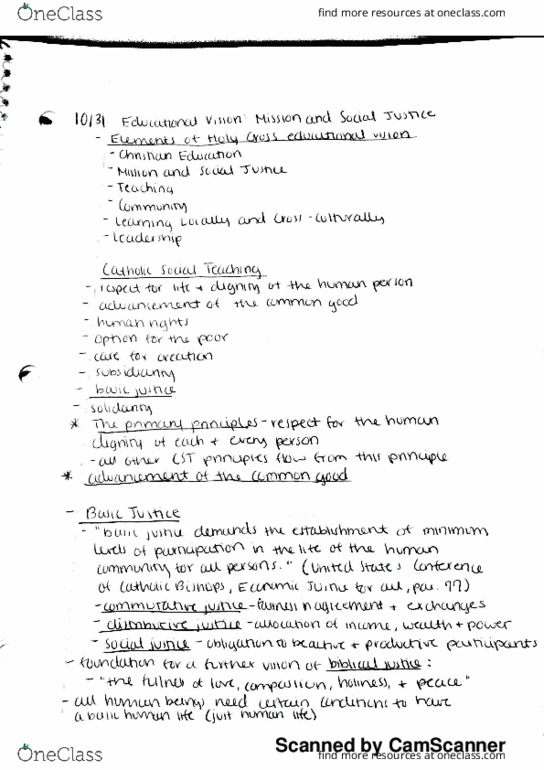 OneClass
find more resources at oneclass.com
10/31 Educational Vision: Mission and Social Justice
- Elements of Holy Cross educational vision
- Christian Education
- Mission and Social Justice
- Teaching
- Community
- Learning Locally and Cross-culturally
- Leadership
Catholic Social Teaching
- respect for life + dignity of the human person
- advancement of the common good
- human rights
- option for the poor
- care for creation
- subsidiarity
- basic justice
- solidarity
* The primary principles - respect for the human
dignity of each + every person
- all other CST principles flow from this principle
* advancement of the common good
- Basic Justice
- "basic justice demands the establishment of minimum
levels of participation in the life of the human
community for all persons." (United States Conference
of Catholic Bishops, Economic Justice for all, par. 77)
- commutative justice - fairness in agreement + exchanges
- distributive justice - allocation of income, wealth + power
- social justice - obligation to be active + productive participants
- foundation for a further vision of biblical justice:
- "the fullness of love, compassion, holiness, + peace"
- all human beings need certain conditions to have
a basic human life (just human life)
Scanned by CamScanner
OneClass
find more resources at oneclass.com